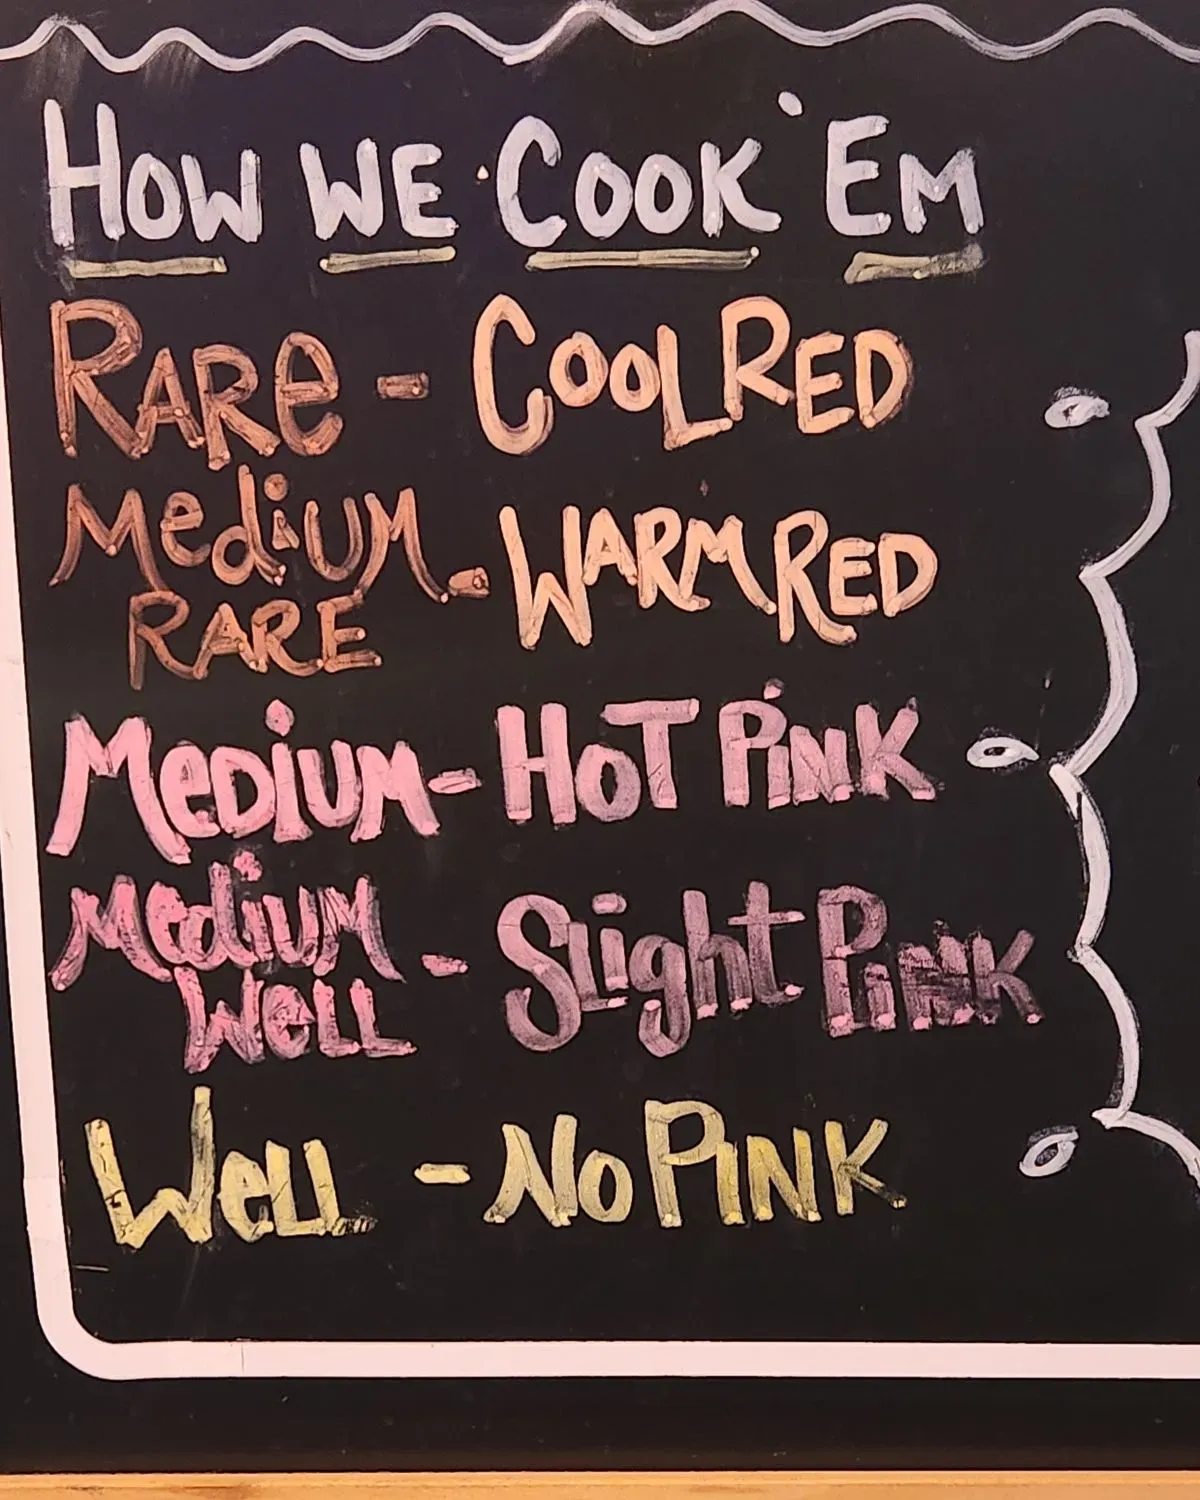 How We Cook 'Em
Rare - Cool Red
Medium Rare - Warm Red
Medium - Hot Pink
Medium Well - Slight Pink
Well - No Pink